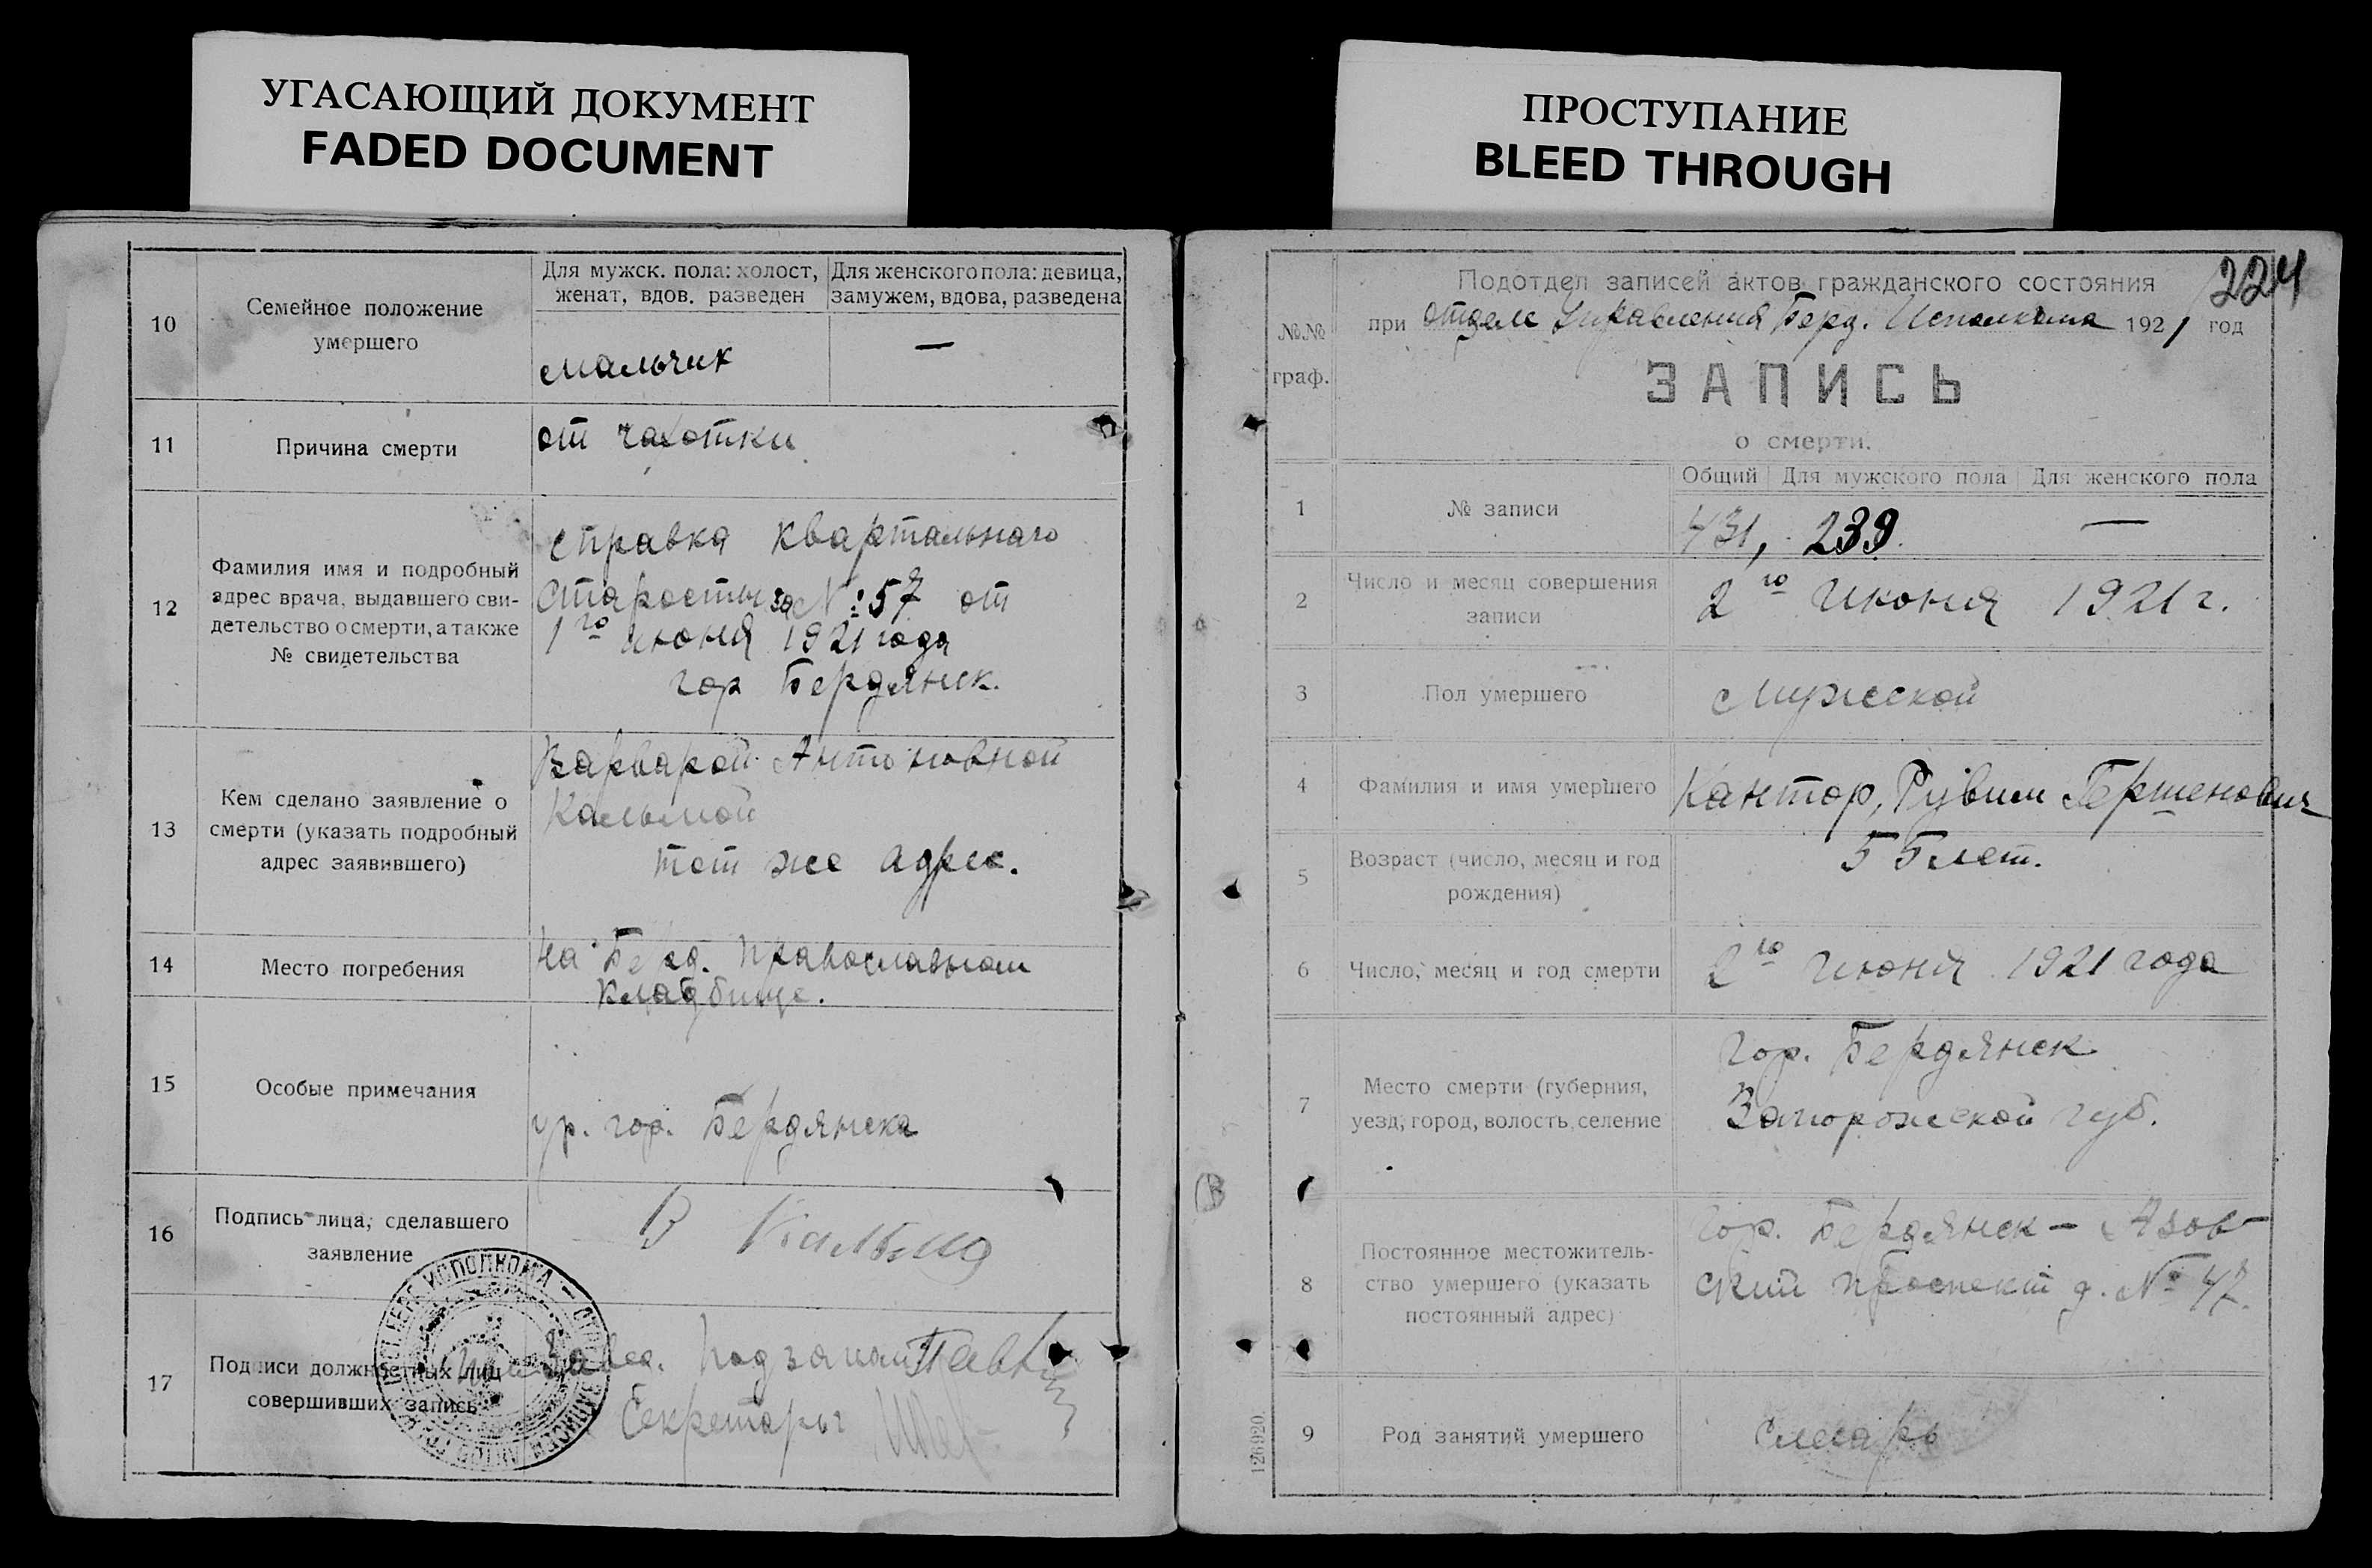 УГАСАЮЩИЙ ДОКУМЕНТ
FADED DOCUMENT
10
Семейное положение
умершего
Для мужск. пола: холост,
женат, вдов. разведен
Для женского пола: девица,
замужем, вдова, разведена
мальчик
—
11
Причина смерти
от чахотки
12
Фамилия имя и подробный
адрес врача, выдавшего сви-
детельство о смерти, а также
№ свидетельства
справка квартального
старосты за №: 57 от
1го июня 1921 года
гор Бердянск.
13
Кем сделано заявление о
смерти (указать подробный
адрес заявившего)
Варварой Антоновной
Кальмой
тот же адрес.
14
Место погребения
На Берд. православном
кладбище.
15
Особые примечания
ур. гор. Бердянска
16
Подпись лица, сделавшего
заявление
В Кальма
17
Подписи должностных лиц
совершивших запись
Секретарь
ИСПОЛКОМА
ПРОСТУПАНИЕ
BLEED THROUGH
224
№№
граф.
Подотдел записей актов гражданского состояния
при отделе Управления Берд. Исполкома 1921 год
ЗАПИСЬ
о смерти.
1
№ записи
Общий
Для мужского пола
Для женского пола
431, 239.
—
2
Число и месяц совершения
записи
2го Июня 1921 г.
3
Пол умершего
Мужской
4
Фамилия и имя умершего
Кантор, Рувим Гершенович
5
Возраст (число, месяц и год
рождения)
55 лет.
6
Число, месяц и год смерти
2го Июня 1921 года
7
Место смерти (губерния,
уезд, город, волость, селение
Гор. Бердянск
Запорожской губ.
8
Постоянное местожитель-
ство умершего (указать
постоянный адрес)
Гор. Бердянск — Азов-
ский проспект д. № 47.
9
Род занятий умершего
Слесарь
126920